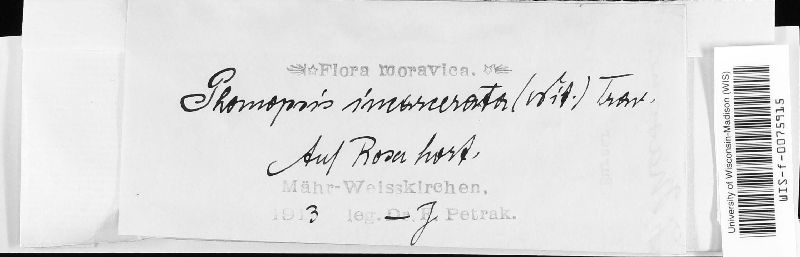 Flora moravica.
Phomopsis incarcerata (Nit.) Trav.
Auf Rosa hort.
Mähr-Weisskirchen.
1913 leg. Dr. F. Petrak. J
University of Wisconsin-Madison (WIS)
WIS-f-0075915